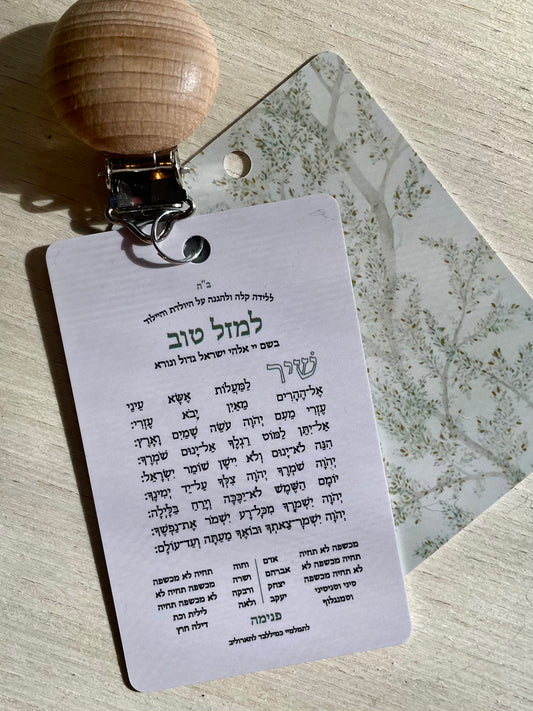 ב"ה
ללידה קלה ולהגנה על היולדת והיילוד
למזל טוב
בשם יי אלהי ישראל גדול ונורא
שִׁיר
לַמַּעֲלוֹת אֶשָּׂא עֵינַי
אֶל־הֶהָרִים מֵאַיִן יָבֹא עֶזְרִי:
עֶזְרִי מֵעִם יְהֹוָה עֹשֵׂה שָׁמַיִם וָאָרֶץ:
אַל־יִתֵּן לַמּוֹט רַגְלֶךָ אַל־יָנוּם שֹׁמְרֶךָ:
הִנֵּה לֹא־יָנוּם וְלֹא יִישָׁן שׁוֹמֵר יִשְׂרָאֵל:
יְהֹוָה שֹׁמְרֶךָ יְהֹוָה צִלְּךָ עַל־יַד יְמִינֶךָ:
יוֹמָם הַשֶּׁמֶשׁ לֹא־יַכֶּכָּה וְיָרֵחַ בַּלָּיְלָה:
יְהֹוָה יִשְׁמָרְךָ מִכָּל־רָע יִשְׁמֹר אֶת־נַפְשֶׁךָ:
יְהֹוָה יִשְׁמָר־צֵאתְךָ וּבוֹאֶךָ מֵעַתָּה וְעַד־עוֹלָם:
מכשפה לא תחיה
לא תחיה מכשפה
תחיה לא מכשפה
סיני וסניסיני
וסמנגלוף
אדם
אברהם
יצחק
יעקב
וחוה
ושרה
ורבקה
ולאה
תחיה לא מכשפה
מכשפה תחיה לא
לא מכשפה תחיה
לילית וכת
דילה חוץ
פנימה